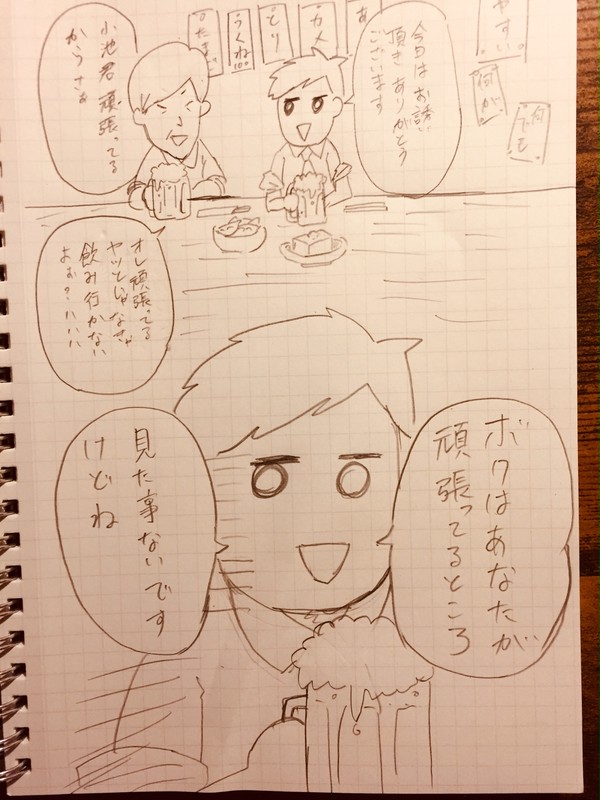 今日はお誘い
頂きありがとう
ございます
小池君頑張ってる
からさぁ
オレ頑張ってる
ヤツとじゃなきゃ
飲み行かない
よぉ?ハハハ
ボクはあなたが
頑張ってるところ
見た事ないです
けどね
やすい
何が
あ
カメ
とり